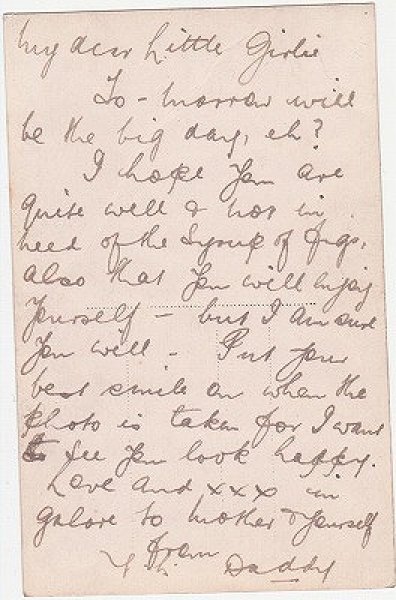 My dear Little Girlie
To-morrow will
be the big day, eh?
I hope you are
quite well & not in
need of the Syrup of figs,
also that you will enjoy
yourself - but I am sure
you will - Put your
best smile on when the
photo is taken for I want
to see you look happy.
Love and xxx in
galore to mother & yourself
from
Daddy